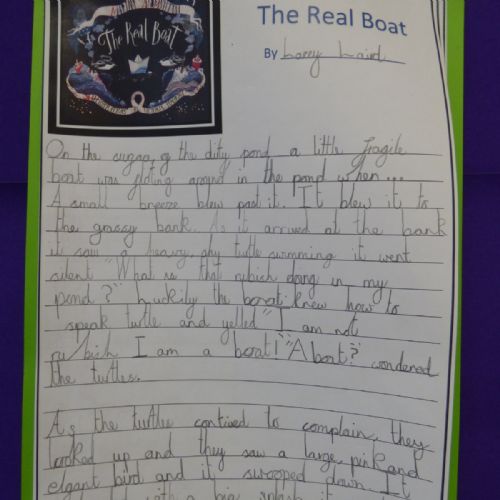 The Real Boat
The Real Boat
By Larry Laird
On the sugaa, of the dity pond a little fragile
boat was floting around in the pond when...
A small breeze blew past it. It blew it to
the grassy bank. As it arrived at the bank
it saw a heavy, shy turtle swimming it went
silent "What is that rubish doing in my
pond?" Luckily the boat knew how to
speak turtle and yelled "I am not
rubbish I am a boat!" "A boat?" wondered
the turtles.
As the turtle contiued to complain, they
looked up and they saw a large, pink and
elgant bird and it swooped down. It
with a big splash it